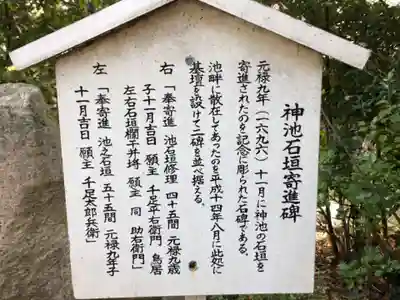 神池石垣寄進碑
元禄九年(一六九六)十一月に神池の石垣を
寄進されたのを記念に彫られた石碑である。
池畔に散在してあったのを平成十四年八月に此処に
基壇を設けて二碑を並べ据える。
右「奉寄進 池石垣修理 四十五間 元禄九歳
子十一月吉日 願主 千足平右衛門 鳥居
左右石垣欄干井塔 願主 同 助右衛門」
左「奉寄進 池之石垣 五十五間 元禄九年子
十一月吉日 願主 千足太郎兵衛」